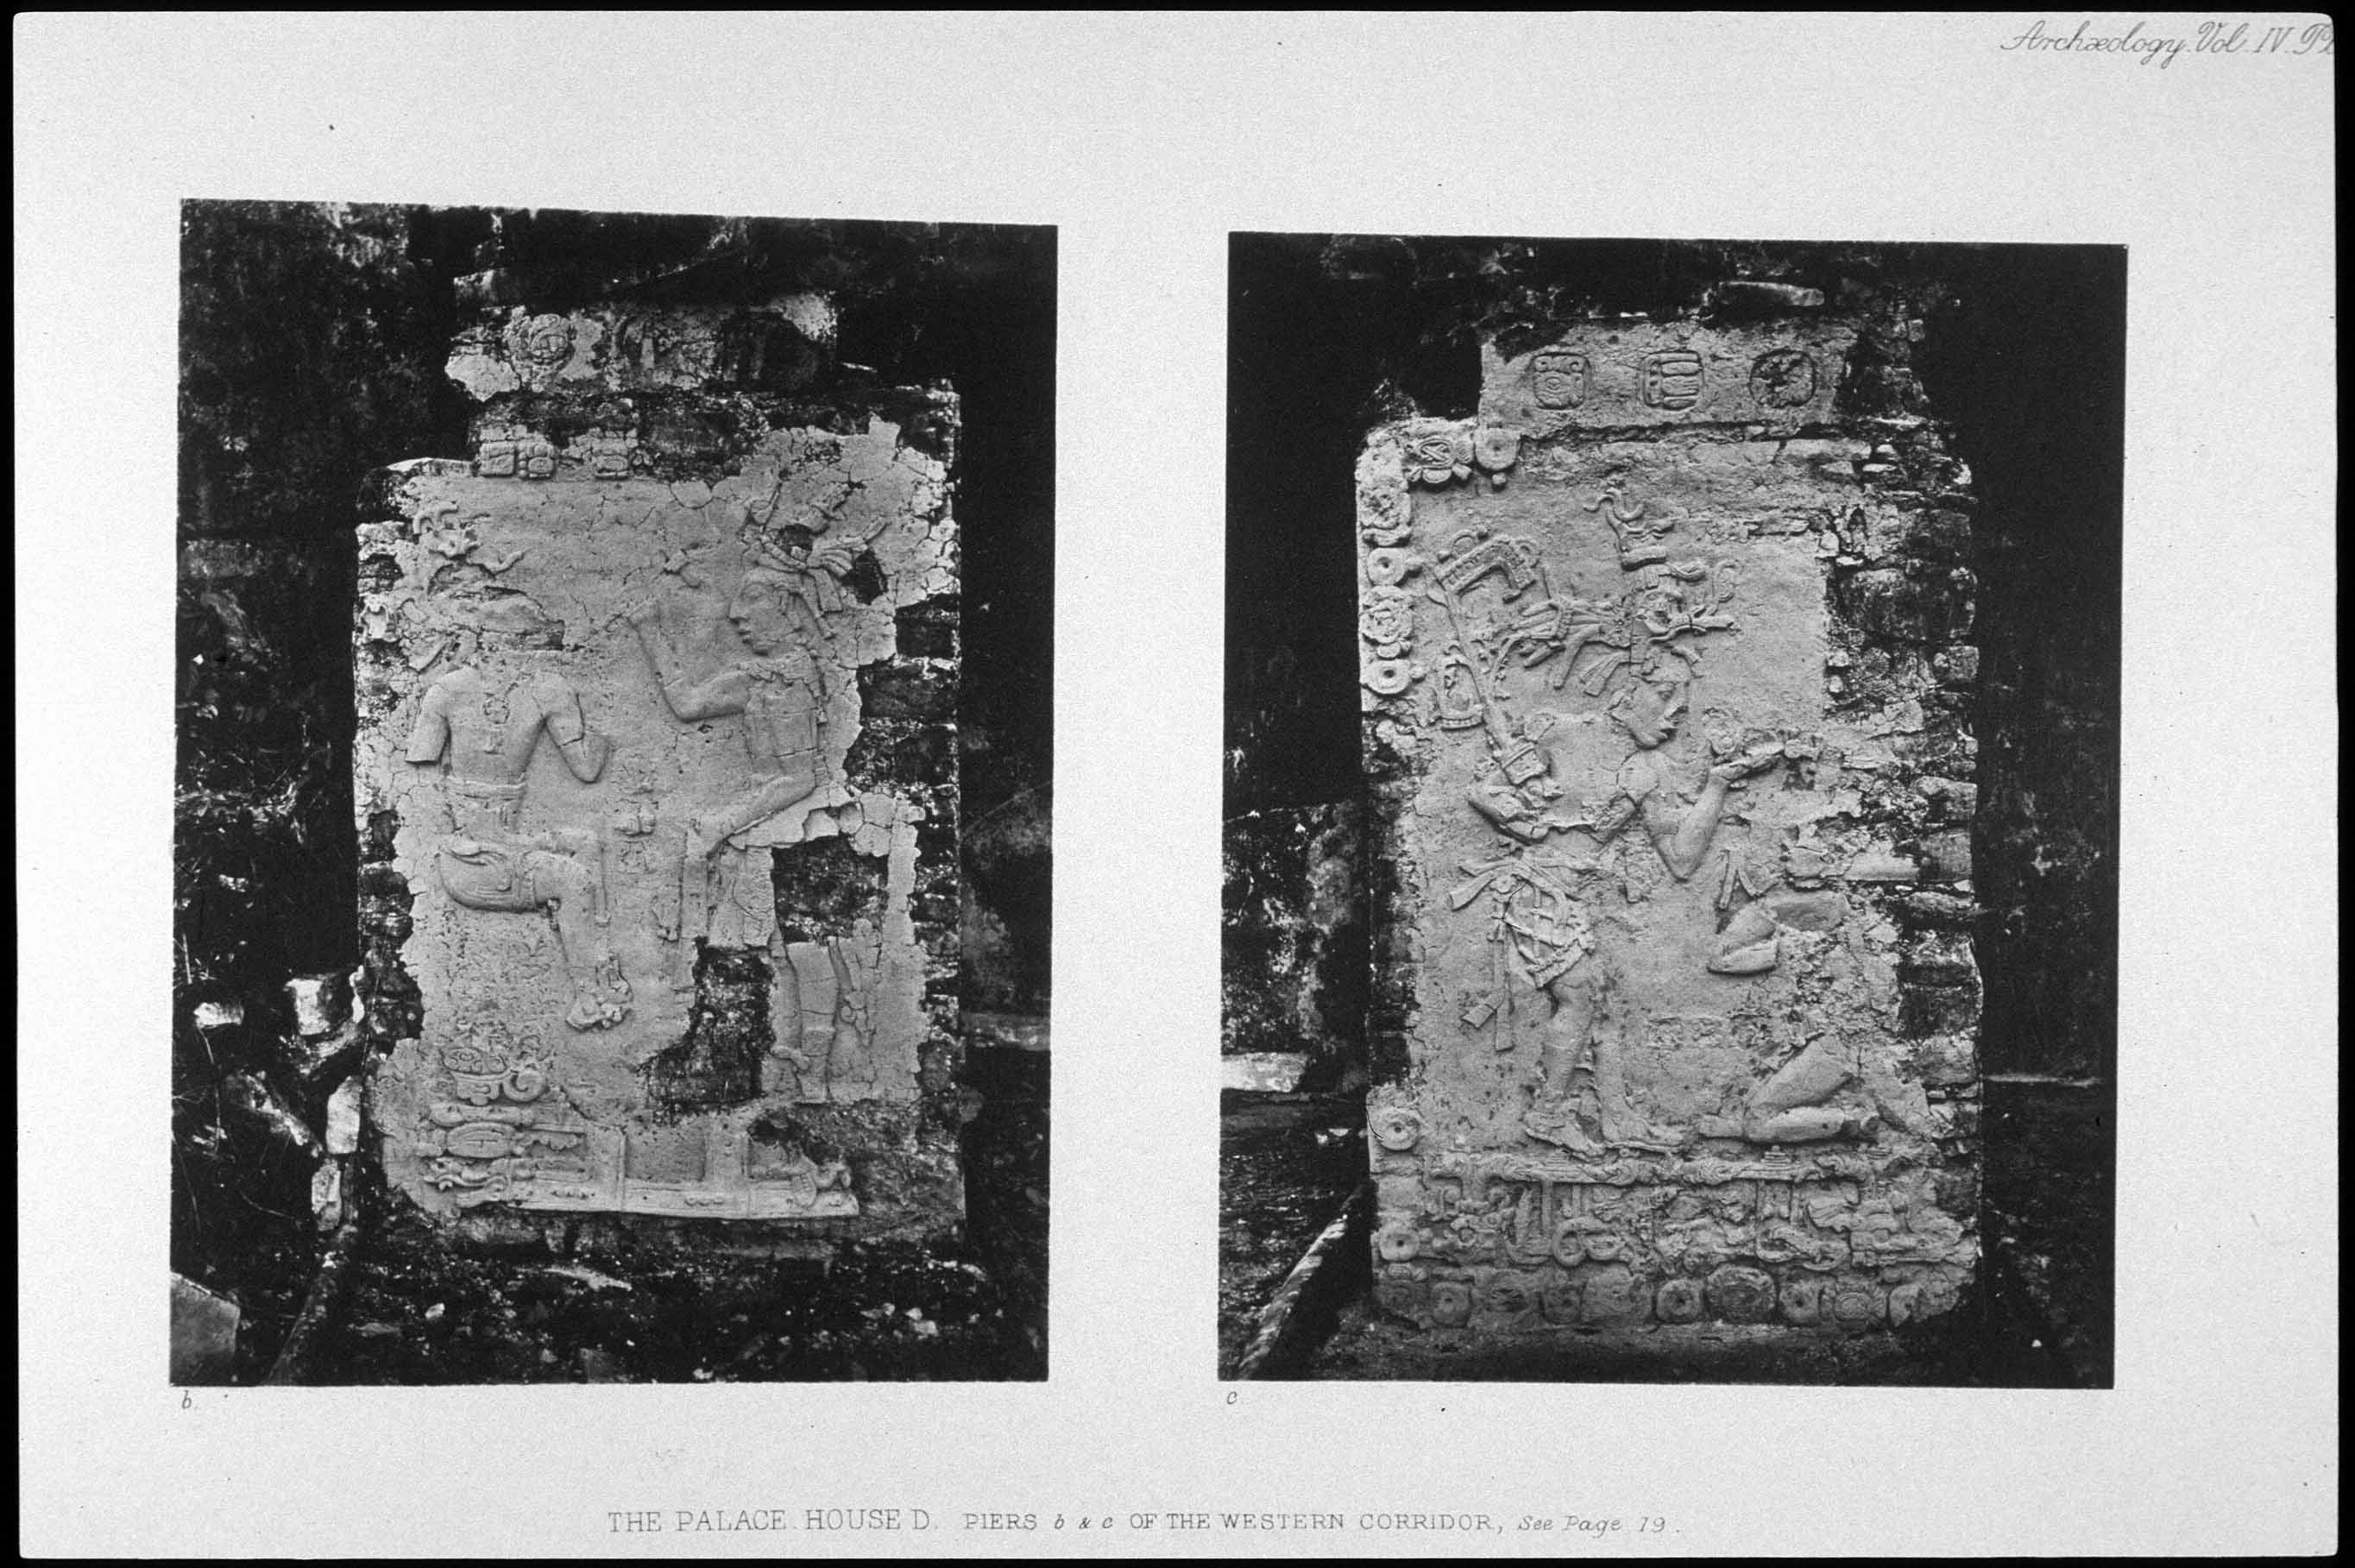 Archæology. Vol. IV. Pl
b.
c
THE PALACE. HOUSE D. PIERS b & c OF THE WESTERN CORRIDOR, See Page 19.